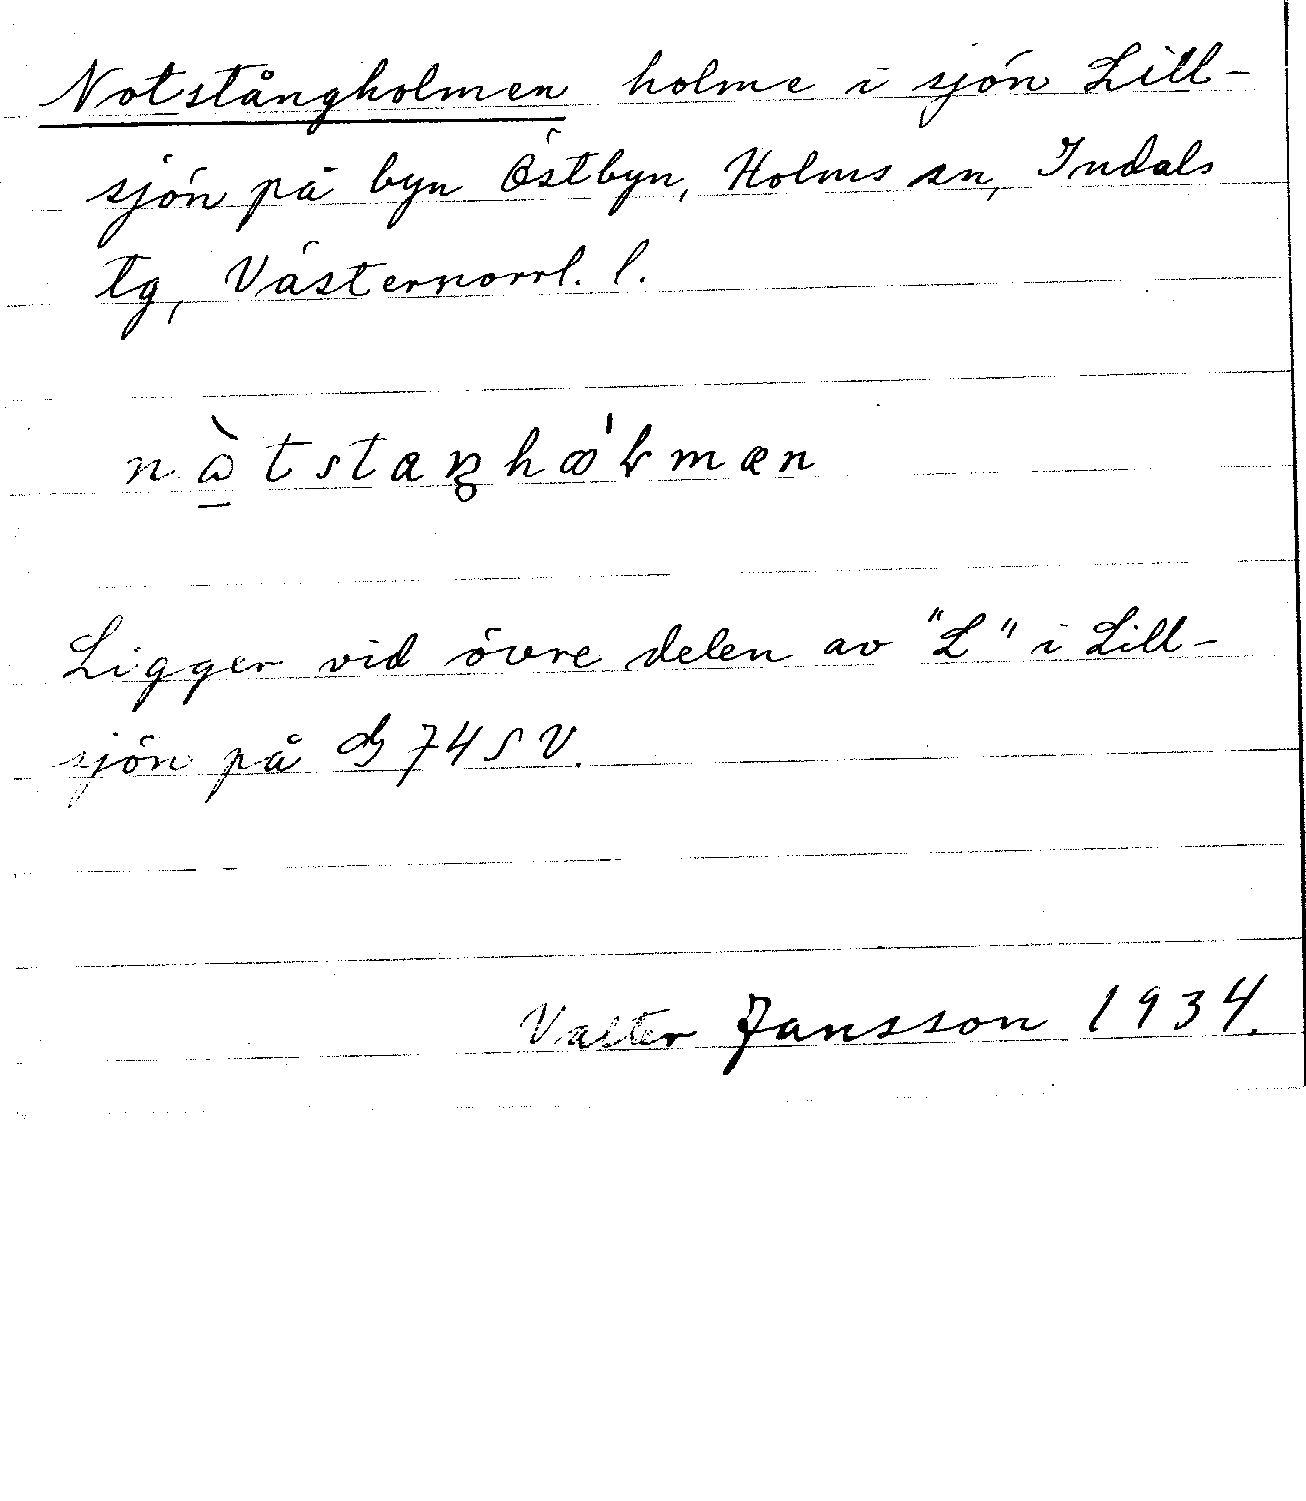 Notstångholmen holme i sjön Lill-
sjön på byn Östbyn, Holms sn, Indals
tg, Västernorrl. l.
nɷ̀tstaŋhꝏ́ɽmæn
Ligger vid övre delen av "L" i Lill-
sjön på G 74 SV.
Valter Jansson 1934.